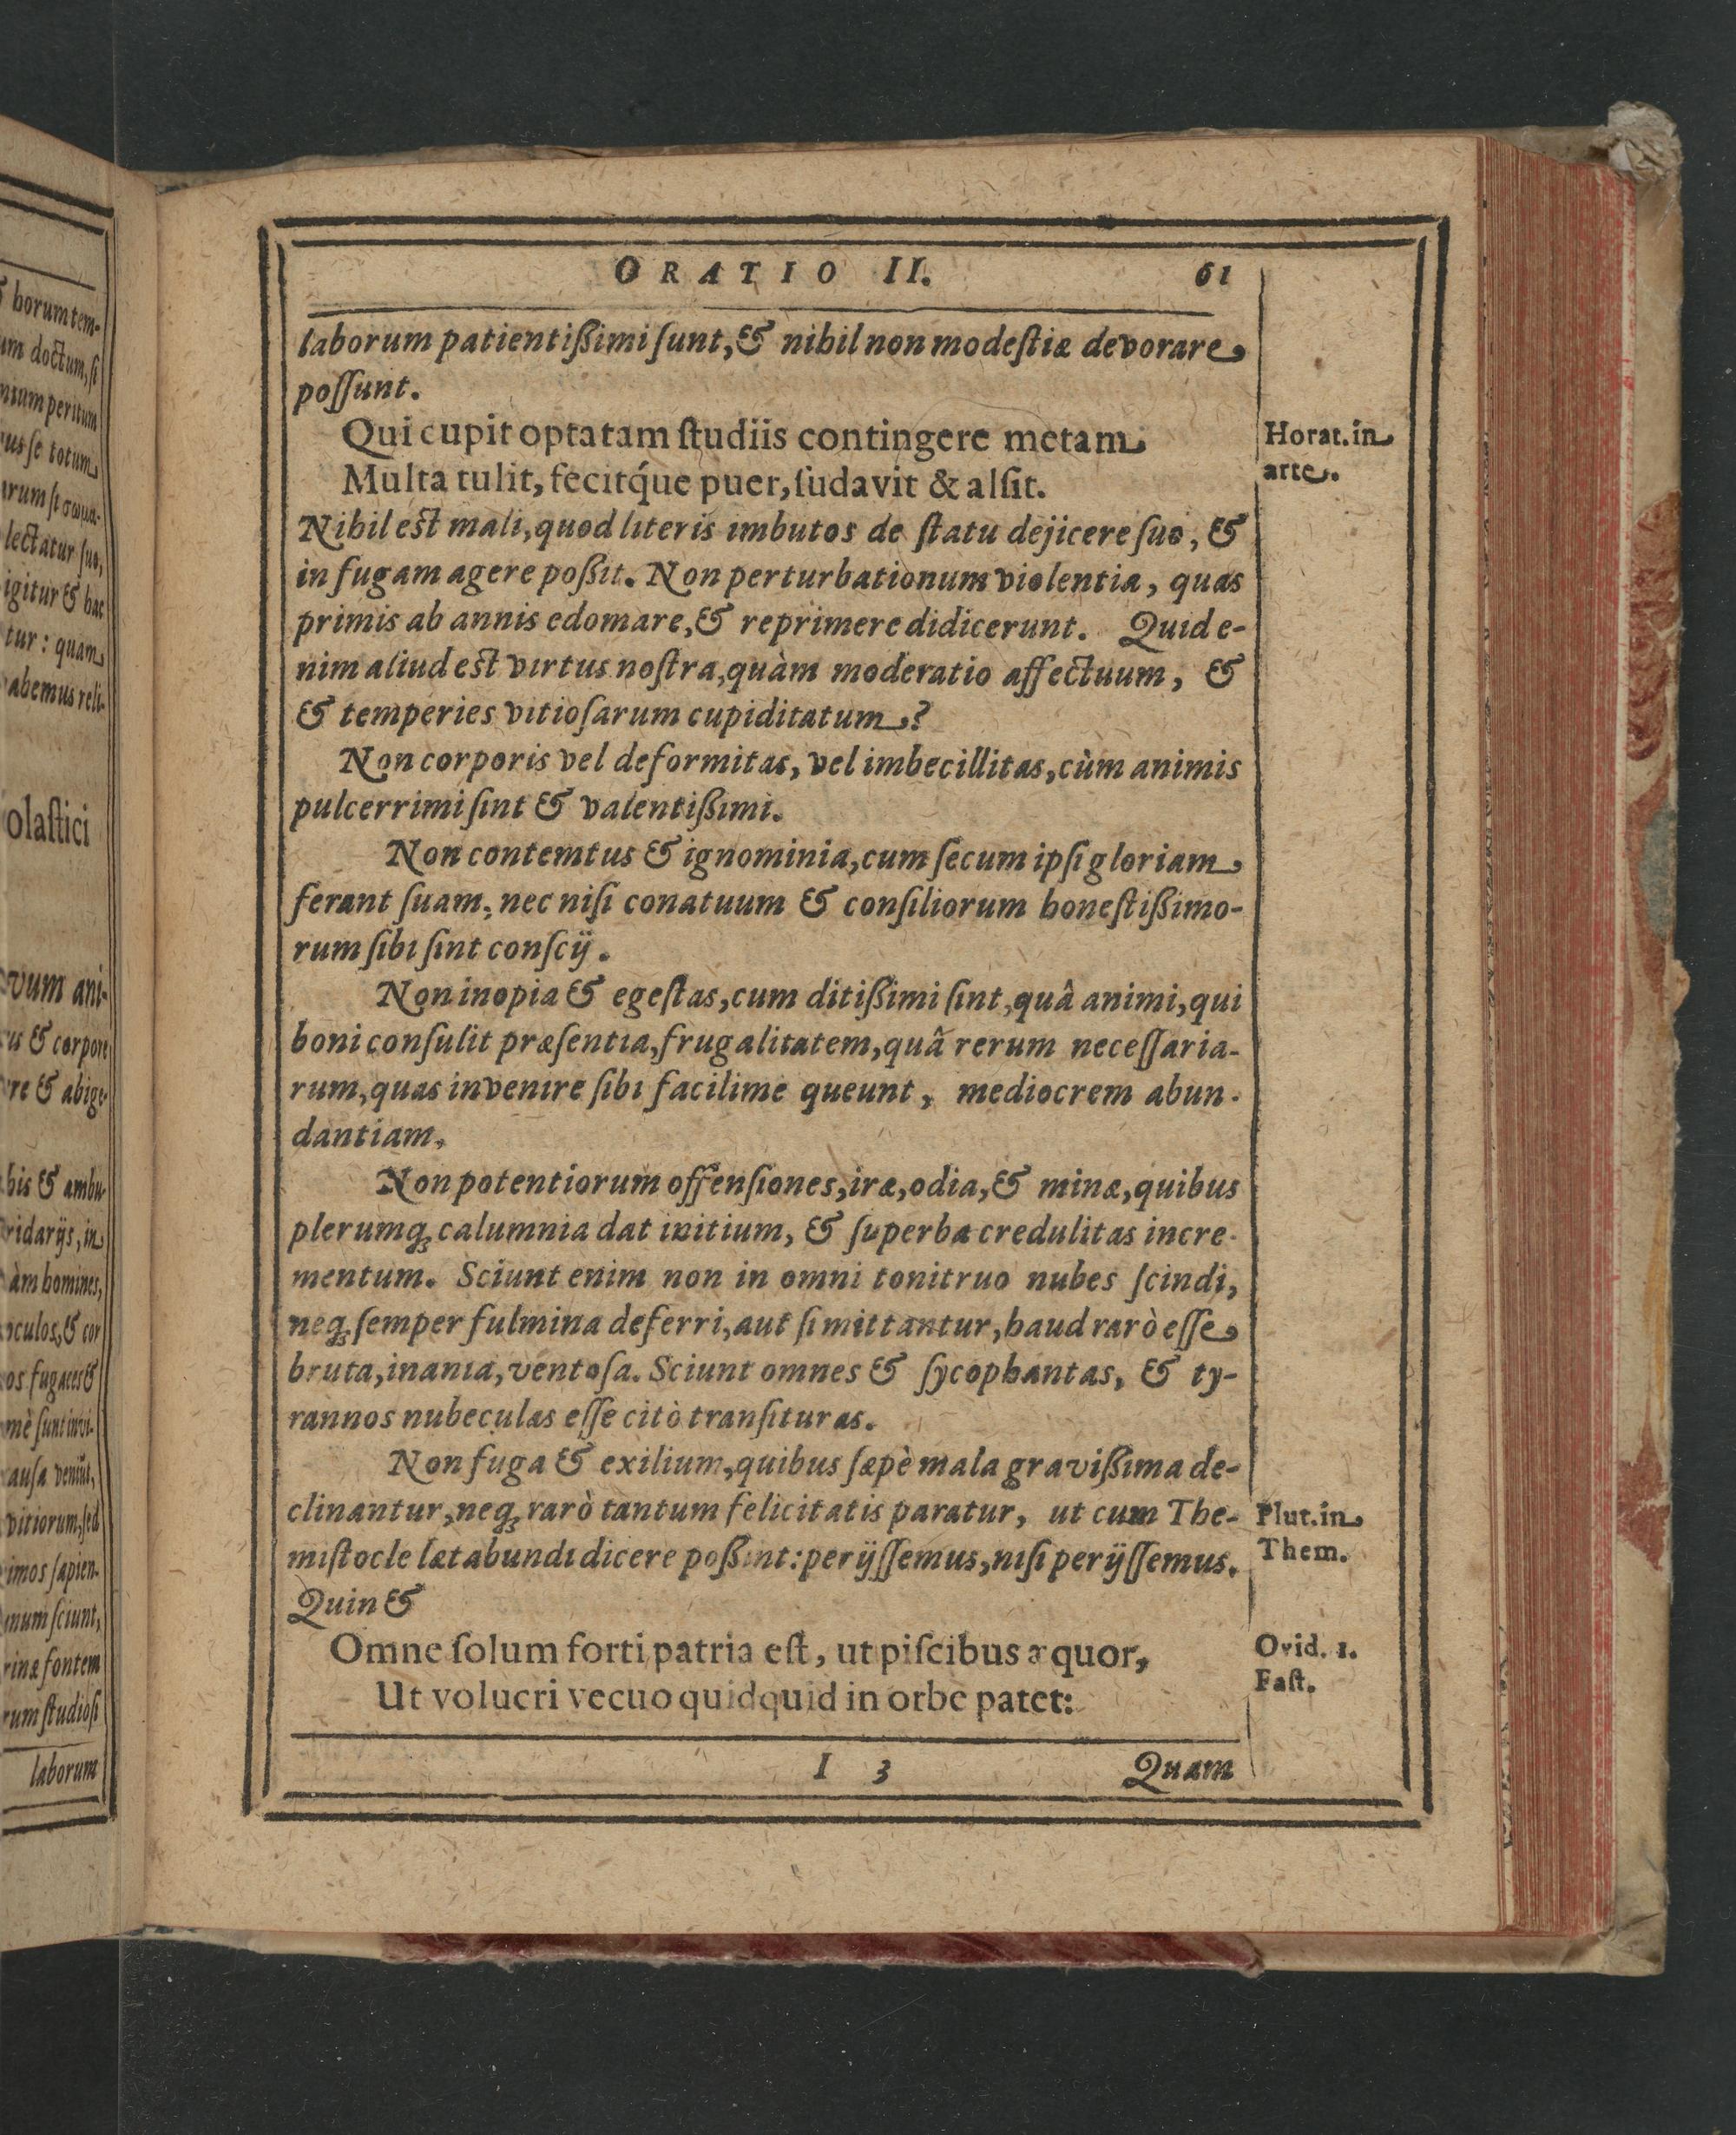 ORATIO II. 61
laborum patientißimi ſunt, & nihil non modeſtiæ devorare
poſſunt.
Qui cupit optatam ſtudiis contingere metam
Multa tulit, fecitq́ue puer, ſudavit & alſit.
Horat. in
arte.
Nihil eſt mali, quod literis imbutos de ſtatu dejicere ſuo, &
in fugam agere poßit. Non perturbationum violentia, quas
primis ab annis edomare, & reprimere didicerunt. Quid e-
nim aliud eſt virtus noſtra, quàm moderatio affectuum, &
& temperies vitioſarum cupiditatum?
Non corporis vel deformitas, vel imbecillitas, cùm animis
pulcerrimi ſint & valentißimi.
Non contemtus & ignominia, cum ſecum ipſi gloriam
ferant ſuam, nec niſi conatuum & conſiliorum honeſtißimo-
rum ſibi ſint conſcij.
Non inopia & egeſtas, cum ditißimi ſint, quâ animi, qui
boni conſulit præſentia, frugalitatem, quâ rerum neceſſaria-
rum, quas invenire ſibi facilime queunt, mediocrem abun-
dantiam.
Non potentiorum offenſiones, iræ, odia, & minæ, quibus
plerumq; calumnia dat initium, & ſuperba credulitas incre-
mentum. Sciunt enim non in omni tonitruo nubes ſcindi,
neq; ſemper fulmina deferri, aut ſi mittantur, haud rarò eſſe
bruta, inania, ventoſa. Sciunt omnes & ſycophantas, & ty-
rannos nubeculas eſſe citò tranſituras.
Non fuga & exilium, quibus ſæpè mala gravißima de-
clinantur, neq; rarò tantum felicitatis paratur, ut cum The-
miſtocle lætabundi dicere poßint: perijſſemus, niſi perijſſemus.
Plut. in
Them.
Quin &
Omne ſolum forti patria eſt, ut piſcibus æquor,
Ut volucri vecuo quidquid in orbe patet:
Ovid. 1.
Faſt.
I 3 Quam
& horum tem-
doctum, ſi
peritum
ſe totum
lectatur ſuo,
igitur & hac
tur: quam
abemus reli-
olaſtici
vum ani-
& corpore
re & abige-
bis & ambu-
ridarijs, in
àm homines,
culos, & cor
os fugaces &
mè ſunt invi-
auſa veniũt,
vitiorum, ſed
imos ſapien-
num ſciunt,
rinæ fontem
rum ſtudioſi
laborum